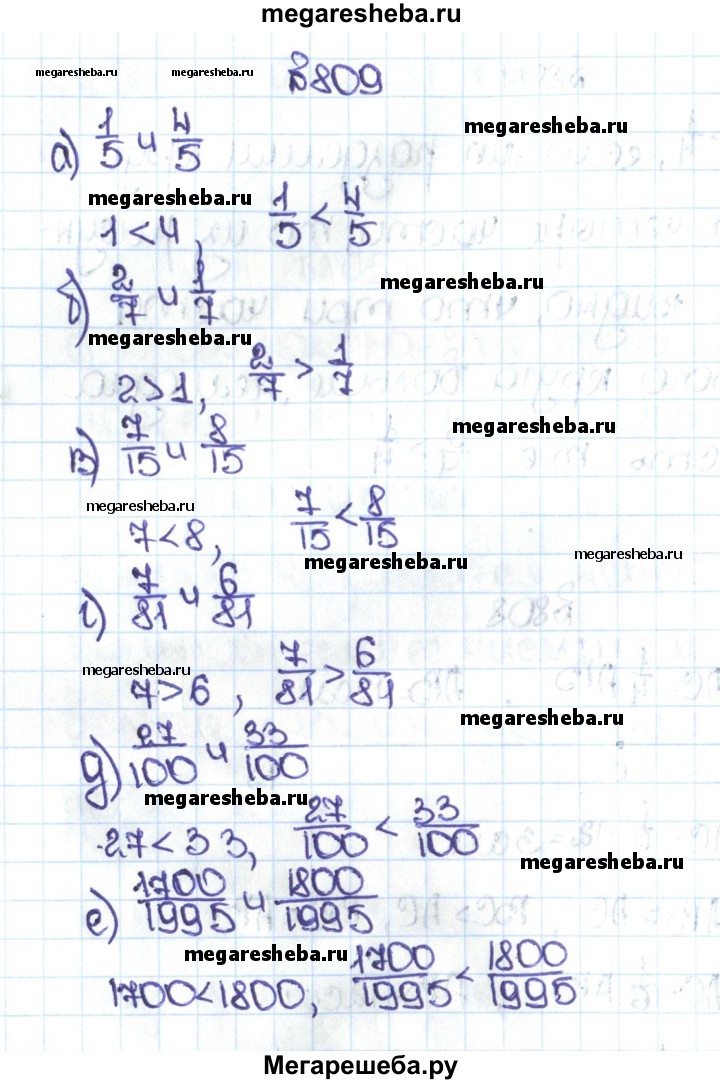 megaresheba.ru
megaresheba.ru megaresheba.ru 809
megaresheba.ru
а) 1/5 и 4/5
megaresheba.ru
1<4, 1/5 < 4/5
megaresheba.ru
б) 2/7 и 1/7
megaresheba.ru
2>1, 2/7 > 1/7
megaresheba.ru
в) 7/15 и 8/15
megaresheba.ru
7<8, 7/15 < 8/15
megaresheba.ru
megaresheba.ru
г) 7/81 и 6/81
megaresheba.ru
7>6, 7/81 > 6/81
megaresheba.ru
д) 27/100 и 33/100
megaresheba.ru
27<33, 27/100 < 33/100
megaresheba.ru
е) 1700/1995 и 1800/1995
megaresheba.ru
1700<1800, 1700/1995 < 1800/1995
Мегарешеба.ру